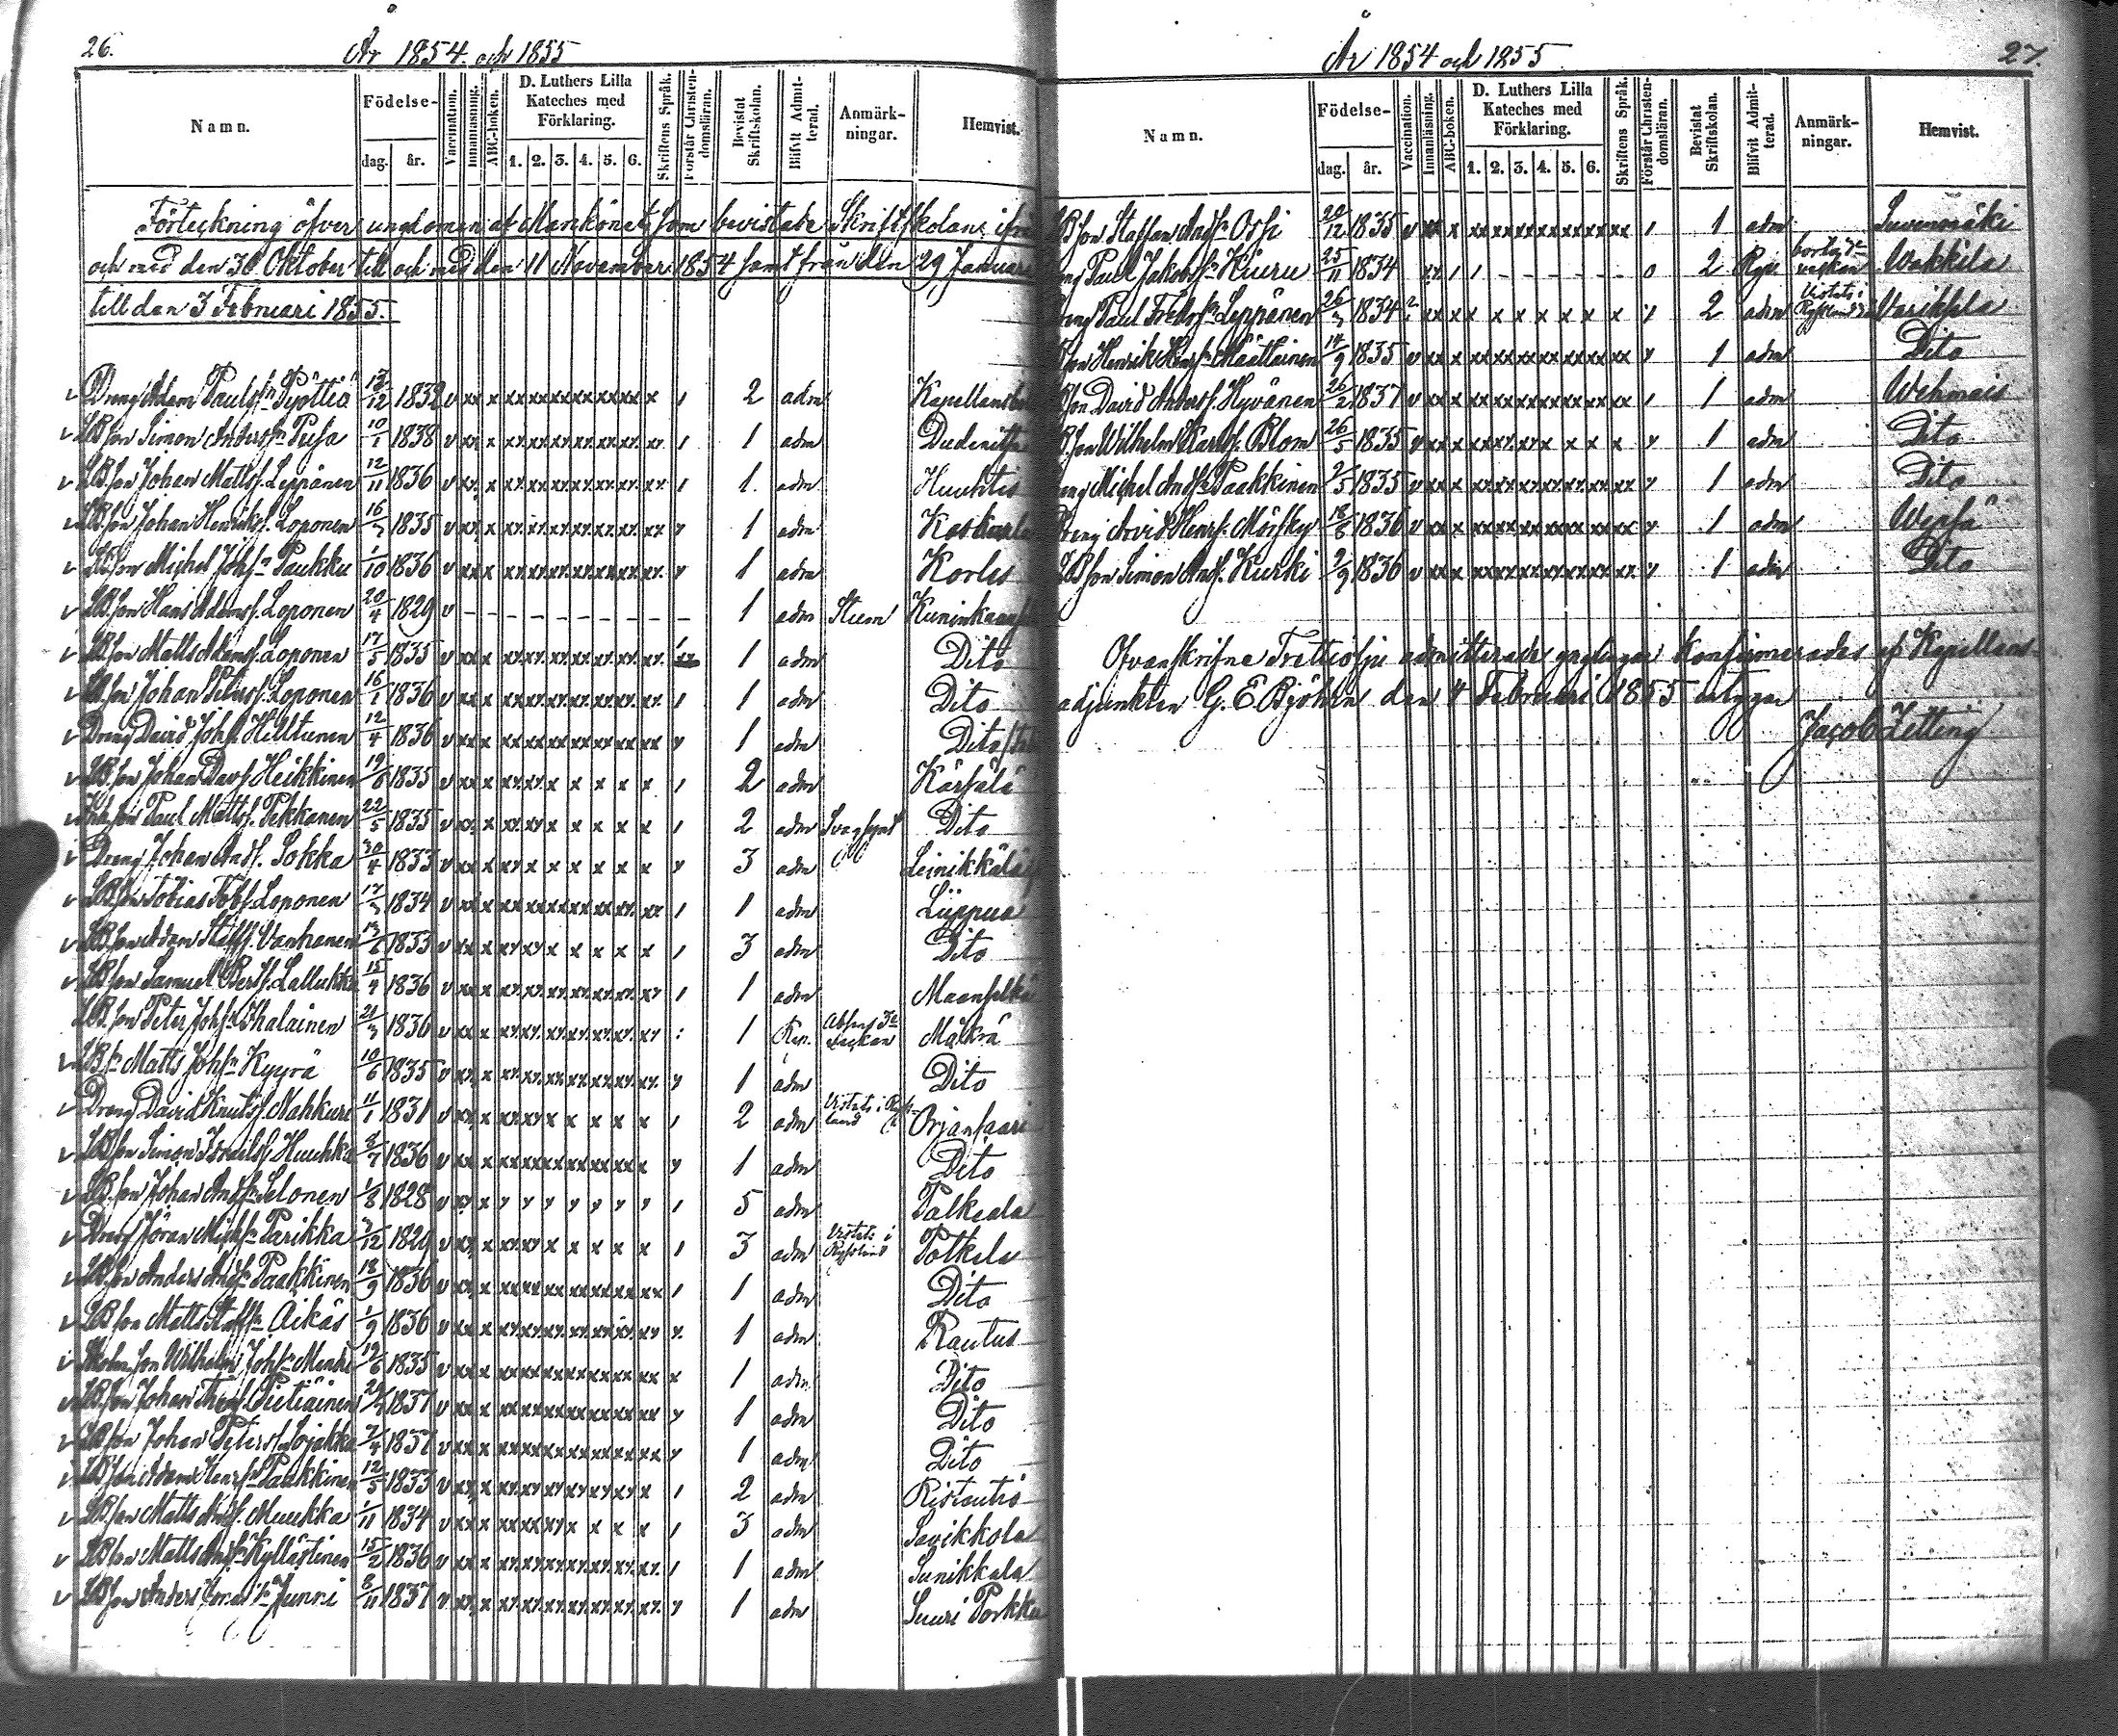 26.
År 1854 och 1855
Namn.
Födelse-
dag.
år.
Vaccination.
Innanläsning.
ABC-boken.
D. Luthers Lilla
Kateches med
Förklaring.
1. 2. 3. 4. 5. 6.
Skriftens Språk.
Förstår Christen-
domsläran.
Bevistat
Skriftskolan.
Blifvit Admit-
terad.
Anmärk-
ningar.
Hemvist.
Förteckning öfver ungdomen af Mankönet, som bevistade Skriftskolan ifrån
och med den 30 Oktober till och med den 11 November 1854 samt från den 29 Januari
till den 3 Februari 1855.
v Dreng Adam Paulss. Pyöttiä 12 1832 v xx x xx xx xx xx xx xx x 1 2 adm Kapellans
v LB son Simon Anderss. Pusa 10/1 1838 v xx x xx xx xx xx xx xx xx 1 1 adm
v LB son Johan Mattss. Leppänen 12/11 1836 v xx x xx xx xx xx xx xx xx 1 1. adm Huuhtis
v LB son Johan Henrikss. Loponen 16 1835 v xx x xx xx xx xx xx xx xx y 1 adm Koskuala
v LB son Michel Johss. Paukku 1/10 1836 v xx x xx xx xx xx xx xx xx y 1 adm Korles
v LB son Hans Adamss. Loponen 20/4 1829 v - - - - - - - - - - 1 adm Stum Kuninkaan
v LB son Matts Adamss. Loponen 17/5 1835 v xx x xx xx xx xx xx xx xx 1 adm Dito
v LB son Johan Peterss. Loponen 16/1 1836 v xx x xx xx xx xx xx xx xx 1 1 adm Dito
v Dreng David Johss. Hiltunen 12/4 1836 v xx x xx xx xx xx xx xx xx y 1 adm Dito
v LB son Johan Davss. Heikkinen 19/6 1835 v xx x xx xx x x x x x 1 2 adm Kärsälä
v son Paul Mattss. Pekkanen 22/5 1835 v xx x xx xx x x x x x 1 2 adm Svagsynt Dito
v Dreng Johan Andss. Sokka 30/4 1833 v xx x xx x x x x x x y 3 adm Leinikkälä
v LB son Tobias Tobss. Loponen 17 1834 v xx x xx xx xx xx xx xx xx 1 1 adm Lüppua
v LB son Adam Staffss. Vanhanen 13/6 1833 v xx x xx xx x x x x x 1 3 adm Dito
v LB son Samuel Bertss. Lallukka 15/4 1836 v xx x xx xx xx xx xx xx xx 1 1 adm Maanselkä
LB son Peter Johss. Ihalainen 21/3 1836 v xx x xx xx xx xx xx xx xx : 1 Rej. Absens 3e veckan Mäkrä
v LB sn Matts Johsn Kyyrä 10/6 1835 v xx x xx xx xx xx xx xx xx y 1 adm Dito
v Dreng David Knutss. Nahkuri 11/1 1831 v xx x xx xx x x x x x 1 2 adm Vistats i Ryssland Orjansaari
v LB son Simon Israelss. Huuhka 8/7 1836 v xx x xx xx xx xx xx xx x y 1 adm Dito
v LB son Johan Andss. Selonen 1/8 1828 v xy x y y y y y y y 1 5 adm Palkeala
v Dreng Jöran Michss. Parikka 3/12 1829 v xx x xx xx x x x x x 1 3 adm Vistats i Ryssland Potkela
v LB son Anders Andss. Paakkinen 18/9 1836 v xx x xx xx xx xx xx xx xx 1 1 adm Dito
v LB son Matts Staffss. Aikäs 1/9 1836 v xx x xx xx xx xx xx xx xx y. 1 adm Rautus
v son Wilhelm Johss. 12/6 1835 v xx x xx xx xx xx xx xx xx x 1 adm Dito
v LB son Johan Pietiäinen 1837 v xx x xx xx xx xx xx xx xx y 1 adm Dito
v LB son Johan Peterss. Lojakka 7/4 1837 v xx x xx xx xx xx xx xx xx y 1 adm Dito
v LB son Adam Henrss. Paakkinen 12/5 1833 v xx x xx xx xx xx xx xx x 1 2 adm Ristautio
v LB son Matts Andss. Muukka 1/11 1834 v xx x xx xx xy x x x x 1 3 adm Savikkola
v LB son Matts Andss. Kyllästinen 15/2 1836 v xx x xx xx xx xx xx xx xx. 1 1 adm Sunikkala
v LB son Anders Junni 8/11 1837 v xx x xx xx xx xx xx xx xx. y 1 adm Suuri Porkku
År 1854 och 1855
27.
Namn.
Födelse-
dag.
år.
Vaccination.
Innanläsning.
ABC-boken.
D. Luthers Lilla
Kateches med
Förklaring.
1. 2. 3. 4. 5. 6.
Skriftens Språk.
Förstår Christen-
domsläran.
Bevistat
Skriftskolan.
Blifvit Admit-
terad.
Anmärk-
ningar.
Hemvist.
LB son Staffan Andss. Ossi 20/12 1835 v xx x xx xx xx xx xx xx xx 1 1 adm Suvenmäki
Dreng Paul Jakobss. Kiuru 25/11 1834 xx 1 1 - - - - - - 0 2 Rej. borta 3e veckan Wakkila
Dreng Paul Fredrss. Leppänen 26/3 1834 ? xx x x x x x x x x y 2 adm Vistats i Ryssland Varikkala
LB son Henrik Henrss. Määttäinen 14/9 1835 v xx x xx xx xx xx xx xx xx y 1 adm Dito
LB son David Anderss. Hyvänen 26/2 1837 v xx x xx xx xx xx xx xx xx 1 1 adm Wehmais
LB son Wilhelm Karlss. Blom 26/5 1835 v xx x xx xx xx x x x x y 1 adm Dito
Dreng Michel Andss. Paakkinen 2/5 1835 v xx x xx xx xx xx xx xx xx y 1 adm Dito
Dreng Arvid Henrss. Mörsky 18/6 1836 v xx x xx xx xx xx xx xx xx y 1 adm Wepsä
LB son Simon Andss. Kurki 2/9 1836 v xx x xx xx xx xx xx xx xx. y 1 adm Dito
Ofvanskrifne Trettiosju admitterade ynglingar konfirmerades af Kapellans-
adjunkten G. E. Björklén den 4 Februari 1855 betygar
Jacob Zitting